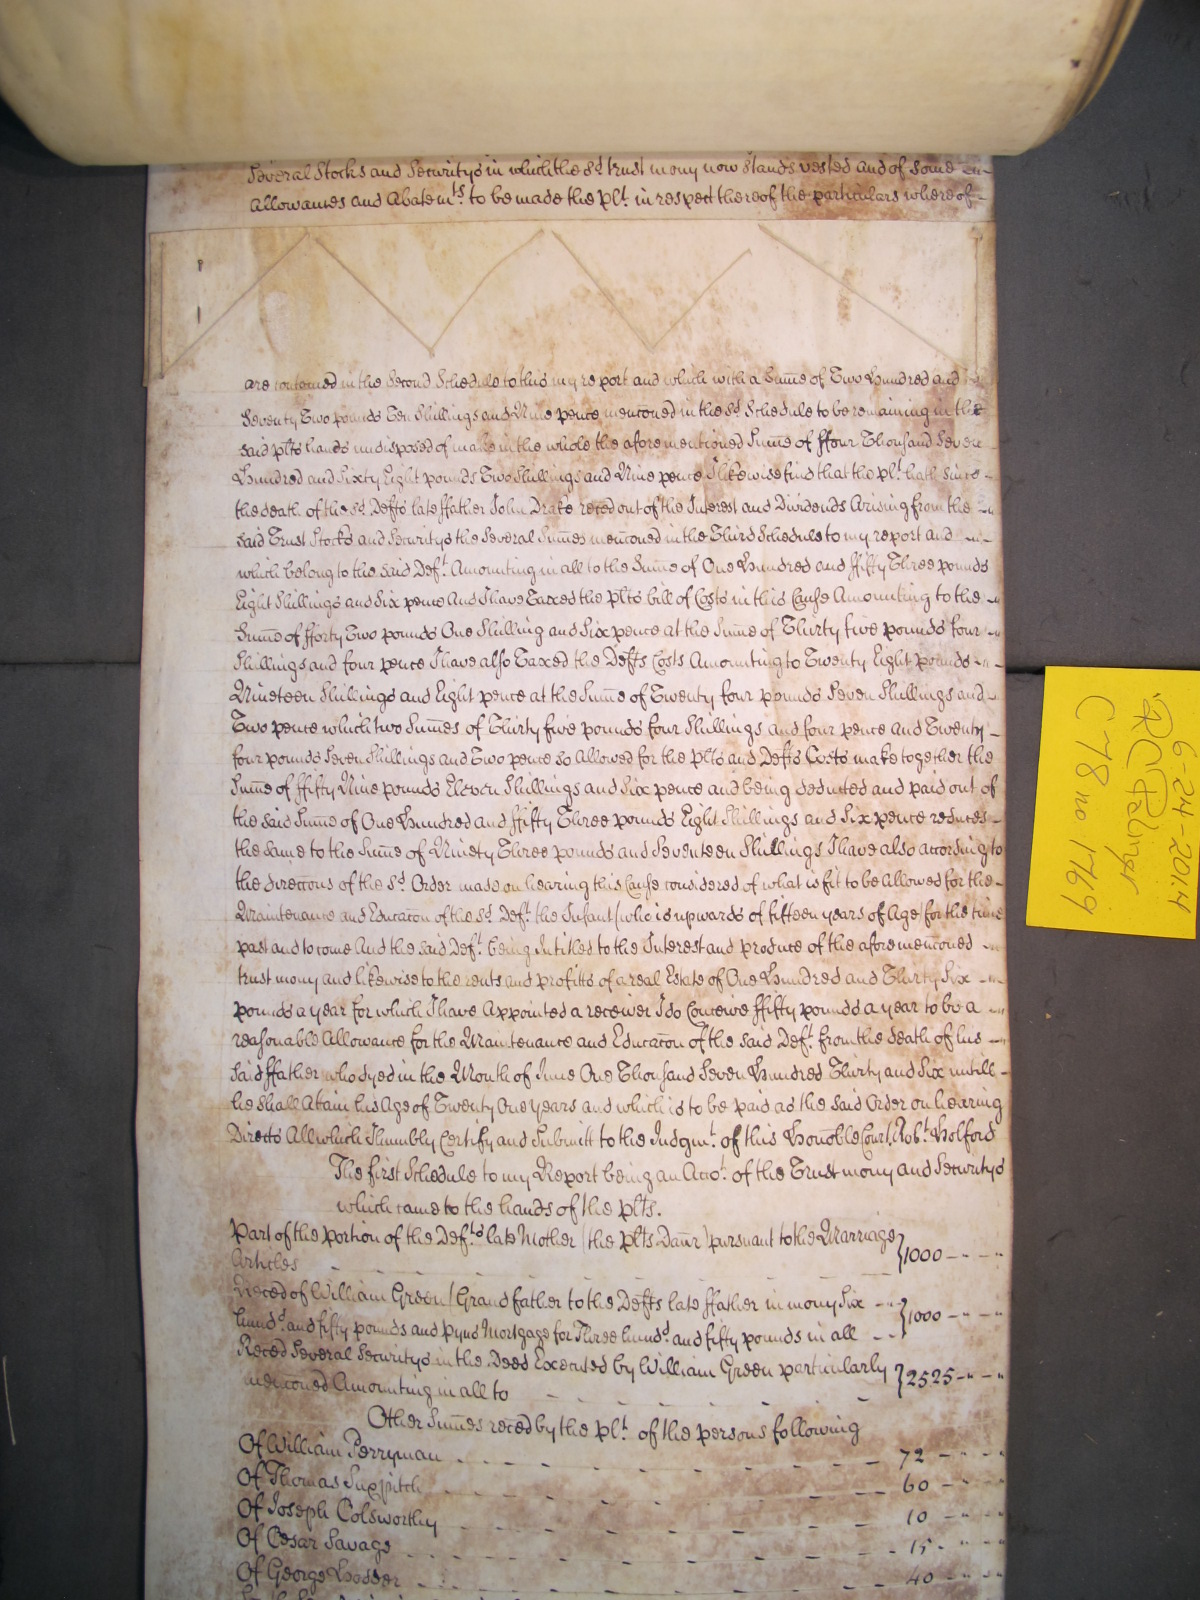 Several Stocks and Securitys in which the sd. trust mony now Stands vested and of some
Allowances and Abatemts. to be made the Plt. in respect thereof the particulars whereof
are conteined in the Second Schedule to this my report and which with a Sum̄e of Two Hundred and
Seventy Two pounds Ten Shillings and Nine pence menc̄oned in the sd. Schedule to be remaining in the
said Plts hands undisposed of make in the whole the aforementioned Sum̄e of ffour Thousand Seven
Hundred and Sixty Eight pounds Two Shillings and Nine pence I likewise find that the Plt. hath since
the death of the sd. Defts late ffather John Drake reced out of the Interest and Dividends Arising from the
said Trust Stocks and Securitys the Several Sum̄es menc̄oned in the Third Schedule to my report and
which belong to the said Deft. Amounting in all to the Sum̄e of One Hundred and ffifty Three pounds
Eight Shillings and Six pence And I have Taxed the Plts bill of Costs in this Cause Amounting to the
Sum̄e of fforty Two pounds One Shilling and Six pence at the Sum̄e of Thirty five pounds four
Shillings and four pence I have also Taxed the Defts Costs Amounting to Twenty Eight pounds
Nineteen Shillings and Eight pence at the Sum̄e of Twenty four pounds Seven Shillings and
Two pence which two Sum̄es of Thirty five pounds four Shillings and four pence and Twenty
four pounds Seven Shillings and Two pence so Allowed for the Plts and Defts Costs make together the
Sum̄e of ffifty Nine pounds Eleven Shillings and Six pence and being deducted and paid out of
the said Sum̄e of One Hundred and ffifty Three pounds Eight Shillings and Six pence reduces
the same to the Sum̄e of Ninety Three pounds and Seventeen Shillings I have also according to
the direcc̄ons of the sd. Order made on hearing this Cause considered of what is fit to be allowed for the
Maintenance and Educac̄on of the sd. Deft. the Infant (who is upwards of fifteen years of Age) for the time
past and to come And the said Deft. being Intitled to the Interest and produce of the aforemenc̄oned
trust mony and likewise to the rents and profitts of a real Estate of One Hundred and Thirty Six
pounds a year for which I have Appointed a receiver I do Conceive ffifty pounds a year to be a
reasonable Allowance for the Maintenance and Educac̄on of the said Deft. from the death of his
said ffather who dyed in the Month of June One Thousand Seven Hundred Thirty and Six untill
he shall Attain his Age of Twenty One years and which is to be paid as the said Order on hearing
Directs All which I humbly Certify and Submitt to the Judgmt. of this Honoble Court. Robt. Holford
The first Schedule to my Report being an Acco̅t. of the Trust mony and Securitys
which came to the hands of the Plts.
Part of the portion of the Defts late Mother (the Plts Daur̄) pursuant to the Marriage
Articles } 1000
Reced of William Green (Grandfather to the Defts late ffather in mony Six
hund. and fifty pounds and Mortgage for Three hund. and fifty pounds in all } 1000
Reced Several Securitys in the Deed Executed by William Green particularly
menc̄oned Amounting in all to } 2525
Other Sum̄es reced by the Plt. of the persons following
Of William Perryman 72
Of Thomas 60
Of Joseph Colsworthy 10
Of Cesar Savage 15
Of George 40
6-24-2014
C 78 no 1769